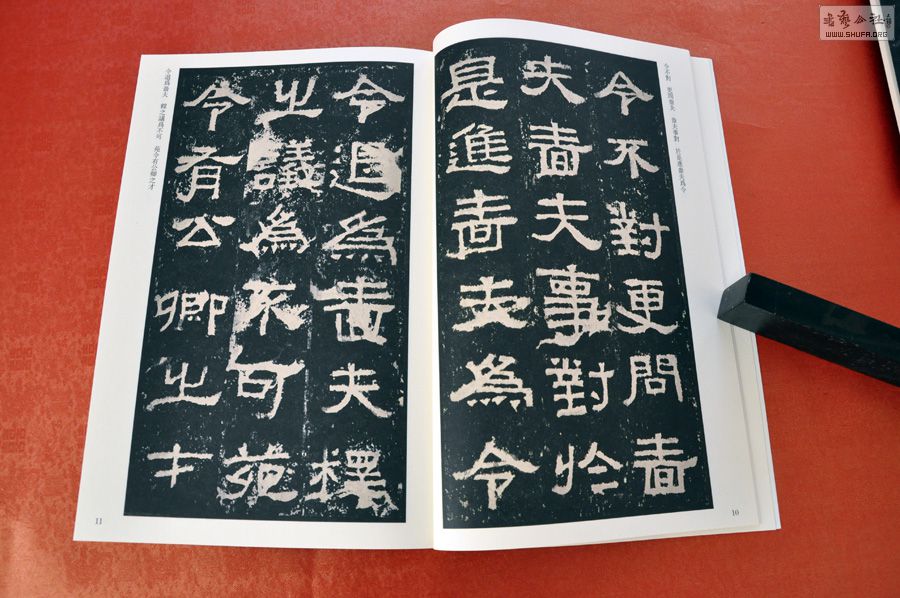 書藝公社
WWW.SHUFA.ORG
令不對 更問嗇夫 嗇夫事對 於是進嗇夫爲令
令不對更問嗇
夫嗇夫事對於
是進嗇夫爲令
10
令退爲嗇夫檡
之議爲不可苑
令有公卿之才
令退爲嗇夫 檡之議爲不可 苑令有公卿之才
11